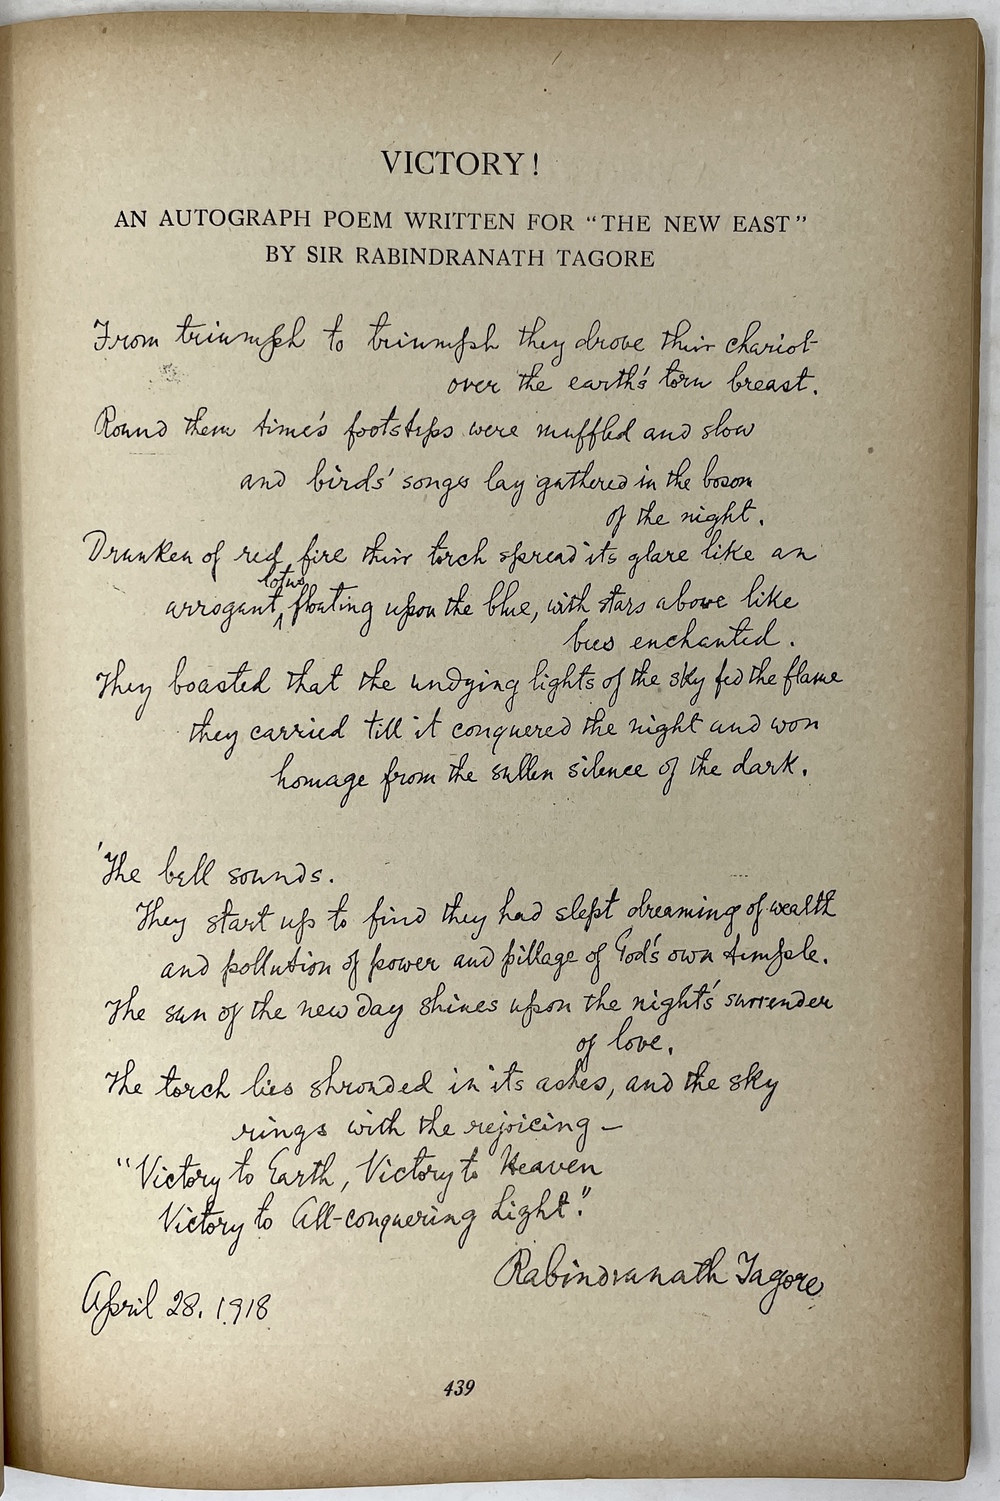 VICTORY!
AN AUTOGRAPH POEM WRITTEN FOR "THE NEW EAST"
BY SIR RABINDRANATH TAGORE
From triumph to triumph they drove their chariot
over the earth's torn breast.
Round them time's footsteps were muffled and slow
and birds' songs lay gathered in the bosom
of the night.
Drunken of red fire their torch spread its glare like an
arrogant lotus floating upon the blue, with stars above like
bees enchanted.
They boasted that the undying lights of the sky fed the flame
they carried till it conquered the night and won
homage from the sullen silence of the dark.
The bell sounds.
They start up to find they had slept dreaming of wealth
and pollution of power and pillage of God's own temple.
The sun of the new day shines upon the night's surrender
of love.
The torch lies shrouded in its ashes, and the sky
rings with the rejoicing—
"Victory to Earth, Victory to Heaven
Victory to All-conquering Light."
Rabindranath Tagore
April 28. 1918
439